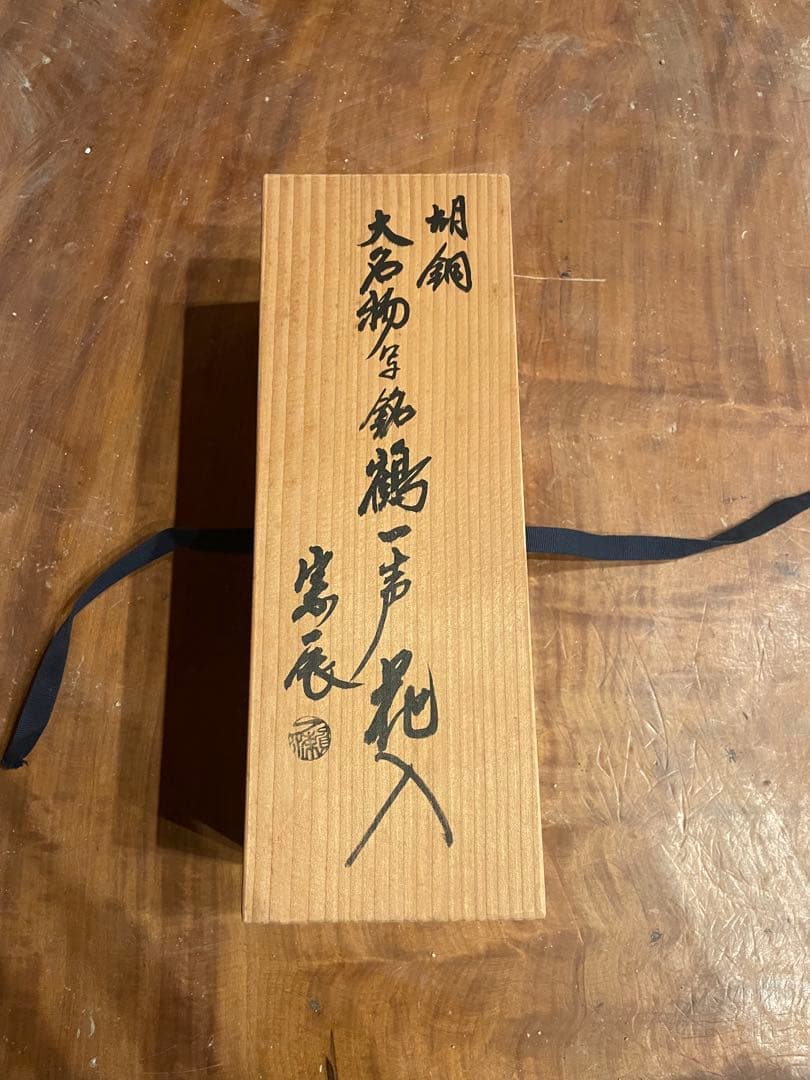 胡銅
大名物写銘鶴一声花入